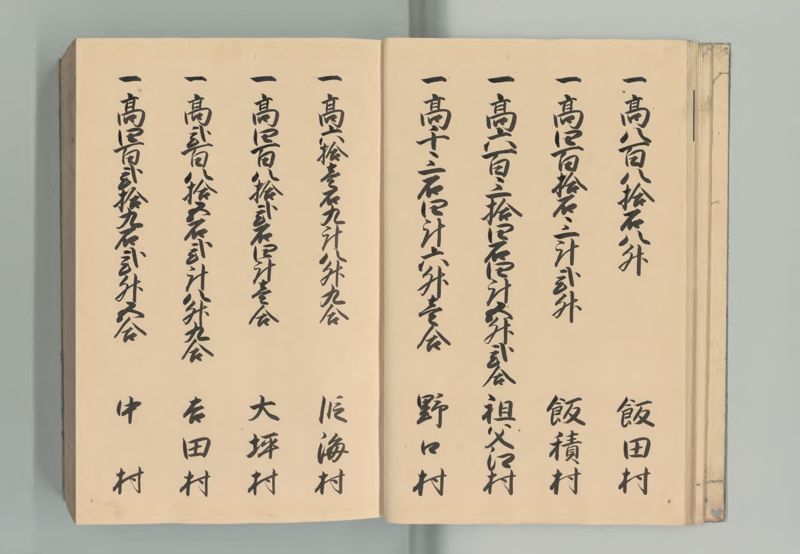 一高八百八拾石八升 飯田村
一高四百拾石三斗弐升 飯積村
一高六百三拾四石四斗五升弐合 祖父江村
一高千三石四斗六升壱合 野口村
一高六拾壱石九斗八升九合 海村
一高四百八拾弐石四斗壱合 大坪村
一高弐百八拾五石弐斗八升九合 吉田村
一高四百弐拾九石弐升五合 中村